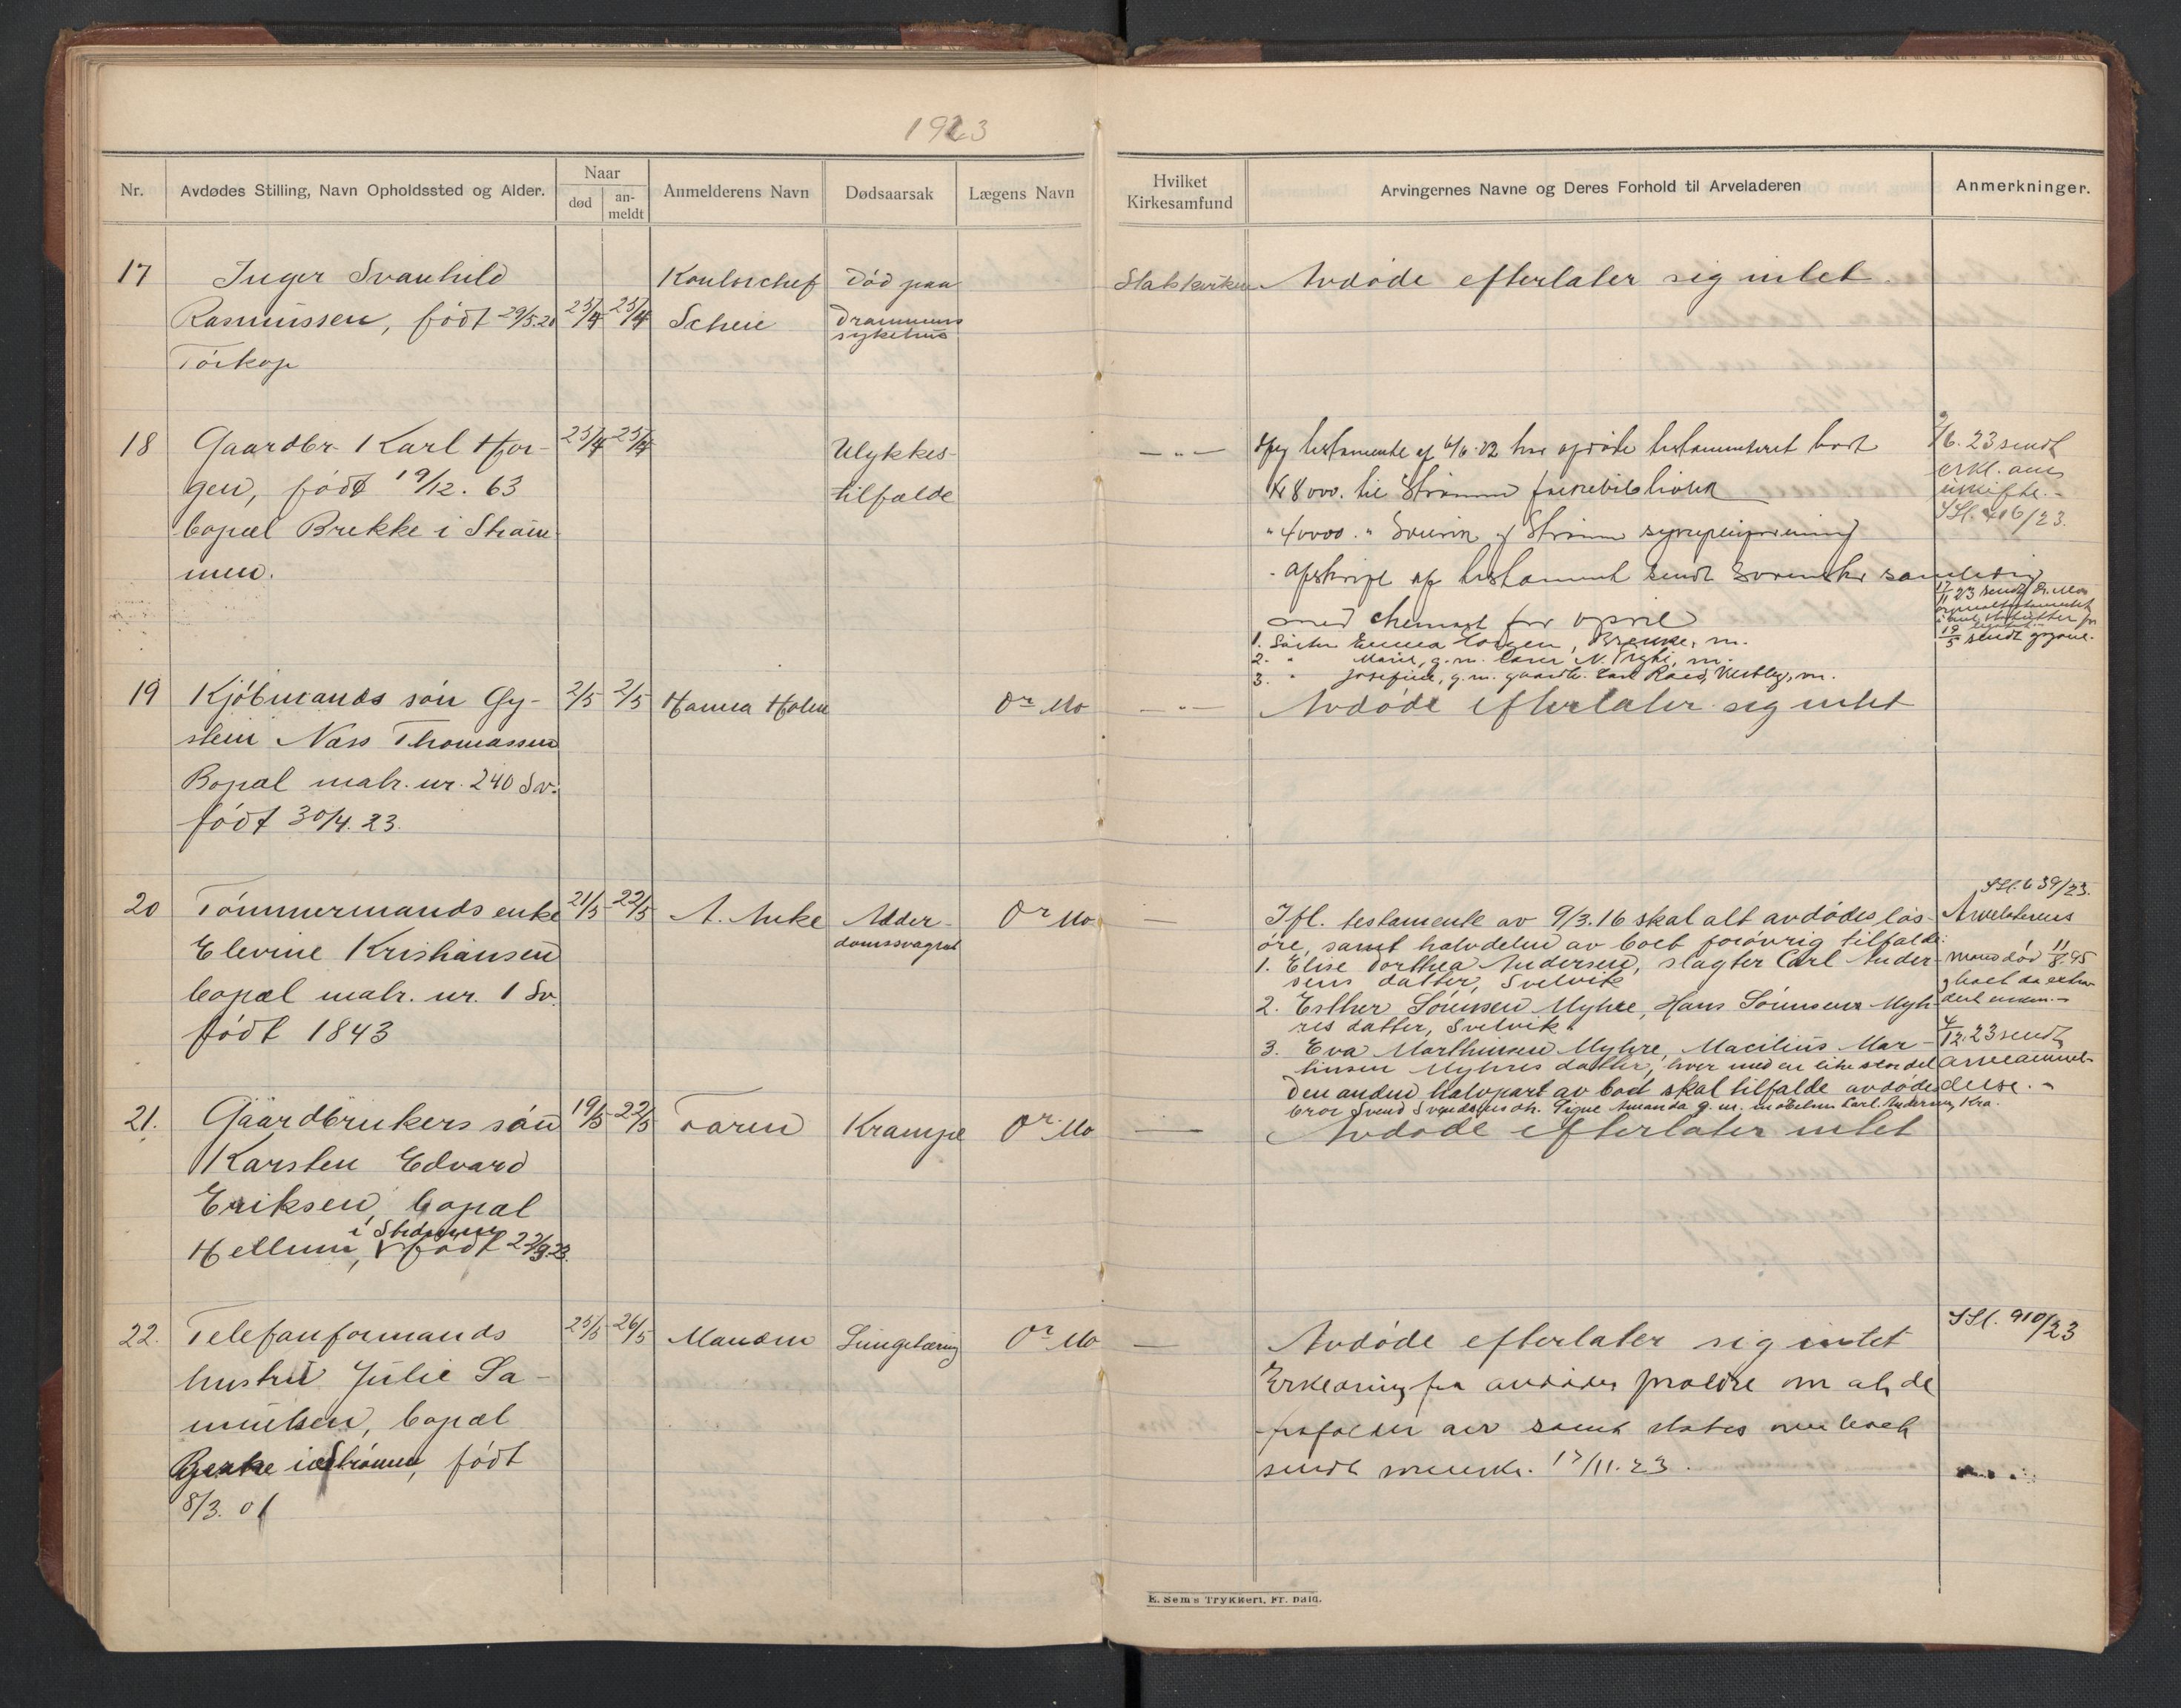 1923
Nr.
Avdødes Stilling, Navn Opholdssted og Alder.
Naar
død
an-
meldt
Anmelderens Navn
Dødsaarsak
Lægens Navn
Hvilket
Kirkesamfund
Arvingernes Navne og Deres Forhold til Arveladeren
Anmerkninger.
17
Inger Svanhild
Rasmussen, født 29/5.20
Tørkop
25/4
25/4
Kontorchef
Scheie
Død paa
Drammens
sykehus
Statskirken
Avdøde efterlater sig intet.
18
Gaardbr. Karl Hor-
gen, født 19/12. 63
bopæl Brekke i Strøm-
men.
25/4
25/4
Ulykkes-
tilfælde
— " —
testamente af har testamenteret bort
Kr 8000. til Strømm folkebibliothek
" 40000. " Svelvik og Strømm sykepleieforening
- afskrift af testament sendt Sorensk. samtidig
med for april
1. Søster Emma Horgen, Brekke, m.
2. " Marie, g.m.
3. " Josefine, g.m. gaardbr. m.
6. 23 sendt
erkl. om
uskifte.
416/23.
23 sendt
sendt
19
Kjøbmands søn Øy-
stein Næss Thomassen
Bopæl matr. nr. 240 Sv.
født 30/4. 23.
2/5
2/5
Hanna Holm
Dr Mo
— " —
Avdøde efterlater sig intet
20
Tømmermands enke
Elevine Kristiansen
bopæl matr. nr. 1 Sv.
født 1843
21/5
22/5
A. Anke
Alder-
domssvaghet
Dr Mo
—
Ifl. testamente av 9/3.16 skal alt avdødes løs-
øre, samt halvdelen av boet forøvrig tilfalde:
1. Elise Dorthea Andersen, slagter Carl Ander-
sens datter, Svelvik
2. Esther Sørensen Myhre, Hans Sørensen Myh-
res datter, Svelvik
3. Eva Marthinsen Myhre, Macilius Mar-
hinsen Myhres datter, hver med en like stor del
Den anden halvpart av boet skal tilfalde avdødes
bror Svend Svendsens dtr. Signe Amanda g.m. Carl Andersen, Kra.
639/23.
Arveladerens
mand død 11/8.95
boet da
4/12.23 sendt
arveanmel-
delse.
21.
Gaardbrukers søn
Karsten Edvard
Eriksen, bopæl
i Strømmen
Hellum, født 22/3.23.
19/5
22/5
Faren
Krampe
Dr Mo
—
Avdøde efterlater intet
22.
Telefonformands
hustru Julie Sa-
muelsen, bopæl
i Strømmen, født
8/3. 01
25/5
26/5
Manden
Lungetæring
Dr Mo
—
Avdøde efterlater sig intet
Erklæring fra avdødes foreldre om at de
frafalder arv samt
sendt sorensk. 17/11.23.
910/23
E. Sem's Trykkeri, Fr.hald.